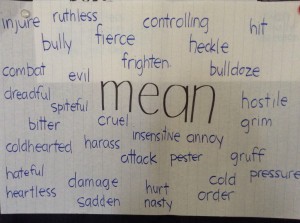 injure ruthless controlling hit
bully fierce heckle
combat evil frighten bulldoze
dreadful spiteful mean hostile
bitter cruel grim
coldhearted harass insensitive annoy
attack pester gruff
hateful damage hurt cold pressure
heartless sadden nasty order